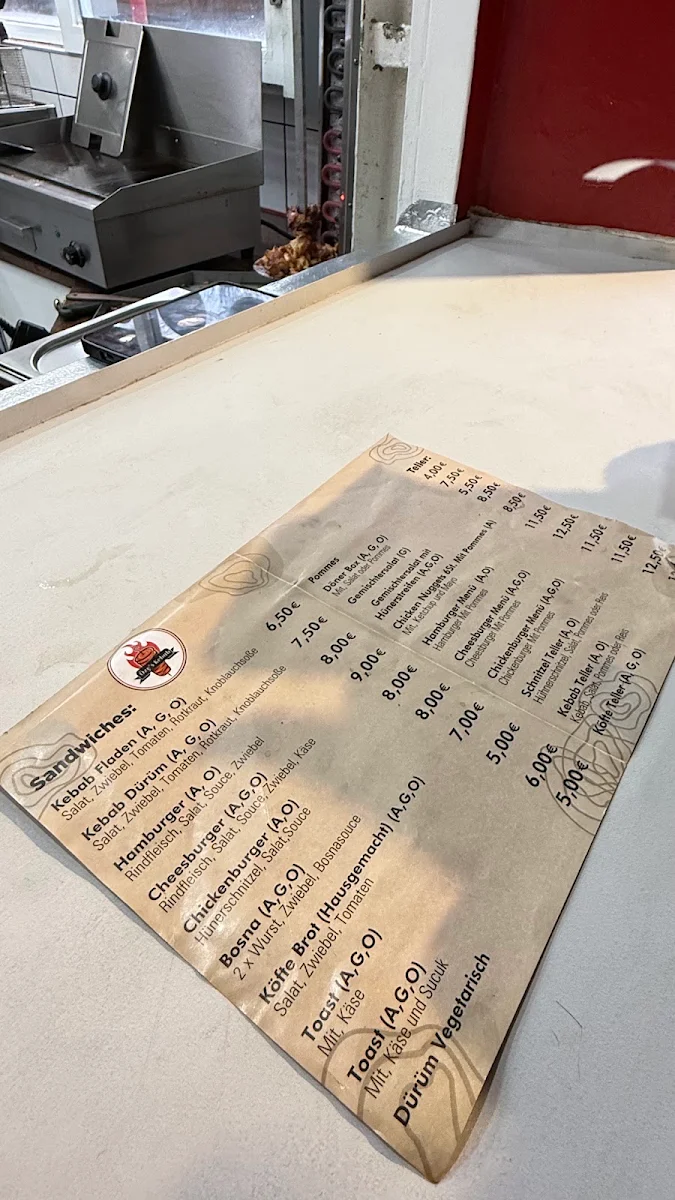 Sandwiches:
Kebab Fladen (A, G, O) 6,50€
Salat, Zwiebel, Tomaten, Rotkraut, Knoblauchsoße
Kebab Dürüm (A, G, O) 7,50€
Salat, Zwiebel, Tomaten, Rotkraut, Knoblauchsoße
Hamburger (A, O) 8,00€
Rindfleisch, Salat, Souce, Zwiebel
Cheesburger (A,G,O) 9,00€
Rindfleisch, Salat, Souce, Zwiebel, Käse
Chickenburger (A,O) 8,00€
Hünerschnitzel, Salat,Souce
Bosna (A,G,O) 8,00€
2 x Wurst, Zwiebel, Bosnasouce
Köfte Brot (Hausgemacht) (A,G,O) 7,00€
Salat, Zwiebel, Tomaten
Toast (A,G,O) 5,00€
Mit, Käse
Toast (A,G,O) 6,00€
Mit, Käse und Sucuk
Dürüm Vegetarisch 5,00€
Teller:
Pommes 4,00€
Döner Box (A, G, O) 7,50€
Mit, Salat oder Pommes
Gemischtersalat (G) 5,50€
Gemischtersalat mit
Hünerstreifen (A,G,O) 8,50€
Chicken Nuggets 6St. Mit Pommes (A) 8,50€
Mit, Ketchup und Mayo
Hamburger Menü (A,O) 11,50€
Hamburger Mit Pommes
Cheesburger Menü (A,G,O) 12,50€
Cheesburger Mit Pommes
Chickenburger Menü (A,G,O) 11,50€
Chickenburger Mit Pommes
Schnitzel Teller (A, O) 11,50€
Hühnerschnitzel, Salat, Pommes oder Reis
Kebab Teller (A, O) 12,50€
Kebab, Salat, Pommes oder Reis
Köfte Teller (A, G, O)